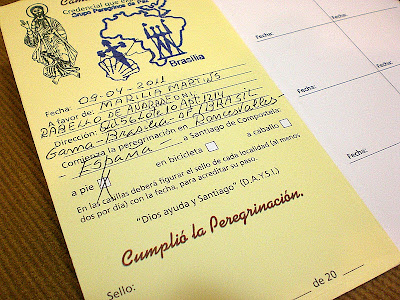 Credencial que e
Grupo Peregrinos da Paz
Brasília
Fecha: 09-04-2011
A favor de: MARILIA MARTINS
RABELLO DE
Dirección: QD 36 Lote 10 Apt 1214
Gama - Brasília - DF / BRAZIL
Comienza la peregrinación en Roncesvalles -
- España - a Santiago de Compostela:
a pie en bicicleta a caballo
En las casillas deberá figurar el sello de cada localidad (al menos
dos por día) con la fecha, para acreditar su paso.
"Dios ayuda y Santiago" (D.A.Y.S.I.)
Cumplió la Peregrinación.
Sello:
de 20
Fecha:
Fecha:
Fecha:
Fecha:
Fecha: